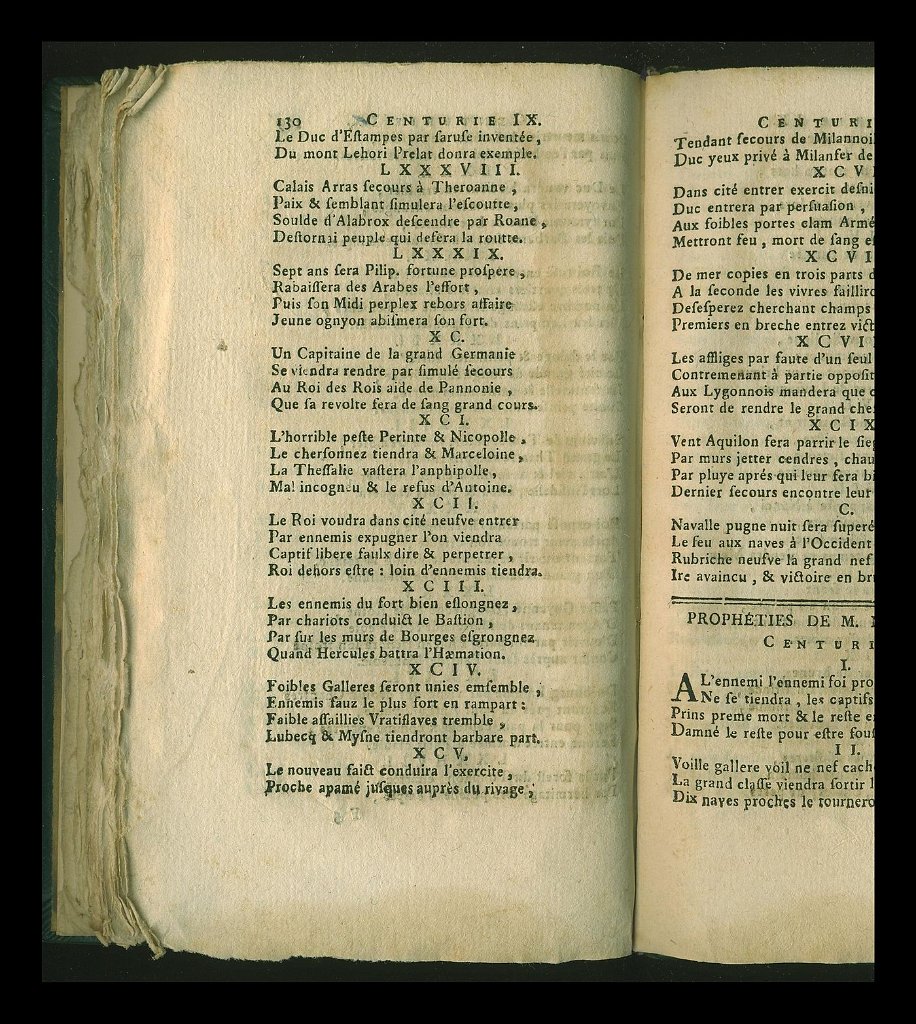 130 CENTURIE IX.
Le Duc d'Eſtampes par ſaruſe inventée,
Du mont Lehori Prelat donra exemple.
LXXXVIII.
Calais Arras ſecours à Theroanne,
Paix & ſemblant ſimulera l'eſcoutte,
Soulde d'Alabrox deſcendre par Roane,
Deſtornai peuple qui defera la routte.
LXXXIX.
Sept ans ſera Pilip. fortune proſpere,
Rabaiſſera des Arabes l'effort,
Puis ſon Midi perplex rebors affaire
Jeune ognyon abiſmera ſon fort.
XC.
Un Capitaine de la grand Germanie
Se viendra rendre par ſimulé ſecours
Au Roi des Rois aide de Pannonie,
Que ſa revolte fera de ſang grand cours.
XCI.
L'horrible peſte Perinte & Nicopolle,
Le cherſonnez tiendra & Marceloine,
La Theſſalie vaſtera l'anphipolle,
Mal incogneu & le refus d'Antoine.
XCII.
Le Roi voudra dans cité neufve entrer
Par ennemis expugner l'on viendra
Captif libere faulx dire & perpetrer,
Roi dehors eſtre : loin d'ennemis tiendra.
XCIII.
Les ennemis du fort bien eſlongnez,
Par chariots conduict le Baſtion,
Par ſur les murs de Bourges eſgrongnez
Quand Hercules battra l'Hæmation.
XCIV.
Foibles Galleres ſeront unies emſemble,
Ennemis fauz le plus fort en rampart :
Faible aſſaillies Vratiſlaves tremble,
Lubecq & Myſne tiendront barbare part.
XCV,
Le nouveau faict conduira l'exercite,
Proche apamé juſques auprès du rivage,
CENTURI
Tendant ſecours de Milannoi
Duc yeux privé à Milanfer de
XCV
Dans cité entrer exercit deſni
Duc entrera par perſuaſion,
Aux foibles portes clam Armé
Mettront feu, mort de ſang e
XCVI
De mer copies en trois parts d
A la ſeconde les vivres failliro
Deſeſperez cherchant champs
Premiers en breche entrez vict
XCVII
Les affliges par faute d'un ſeul
Contremenant à partie oppoſit
Aux Lygonnois mandera que
Seront de rendre le grand che
XCIX
Vent Aquilon fera parrir le ſie
Par murs jetter cendres, chau
Par pluye aprés qui leur fera bi
Dernier ſecours encontre leur
C.
Navalle pugne nuit ſera ſuperé
Le feu aux naves à l'Occident
Rubriche neufve la grand nef
Ire avaincu, & victoire en br
PROPHÉTIES DE M.
CENTURI
I.
A L'ennemi l'ennemi foi pro
Ne ſe tiendra, les captifs
Prins preme mort & le reſte e
Damné le reſte pour eſtre ſou
II.
Voille gallere voil ne nef cach
La grand claſſe viendra ſortir
Dix naves proches le tournero